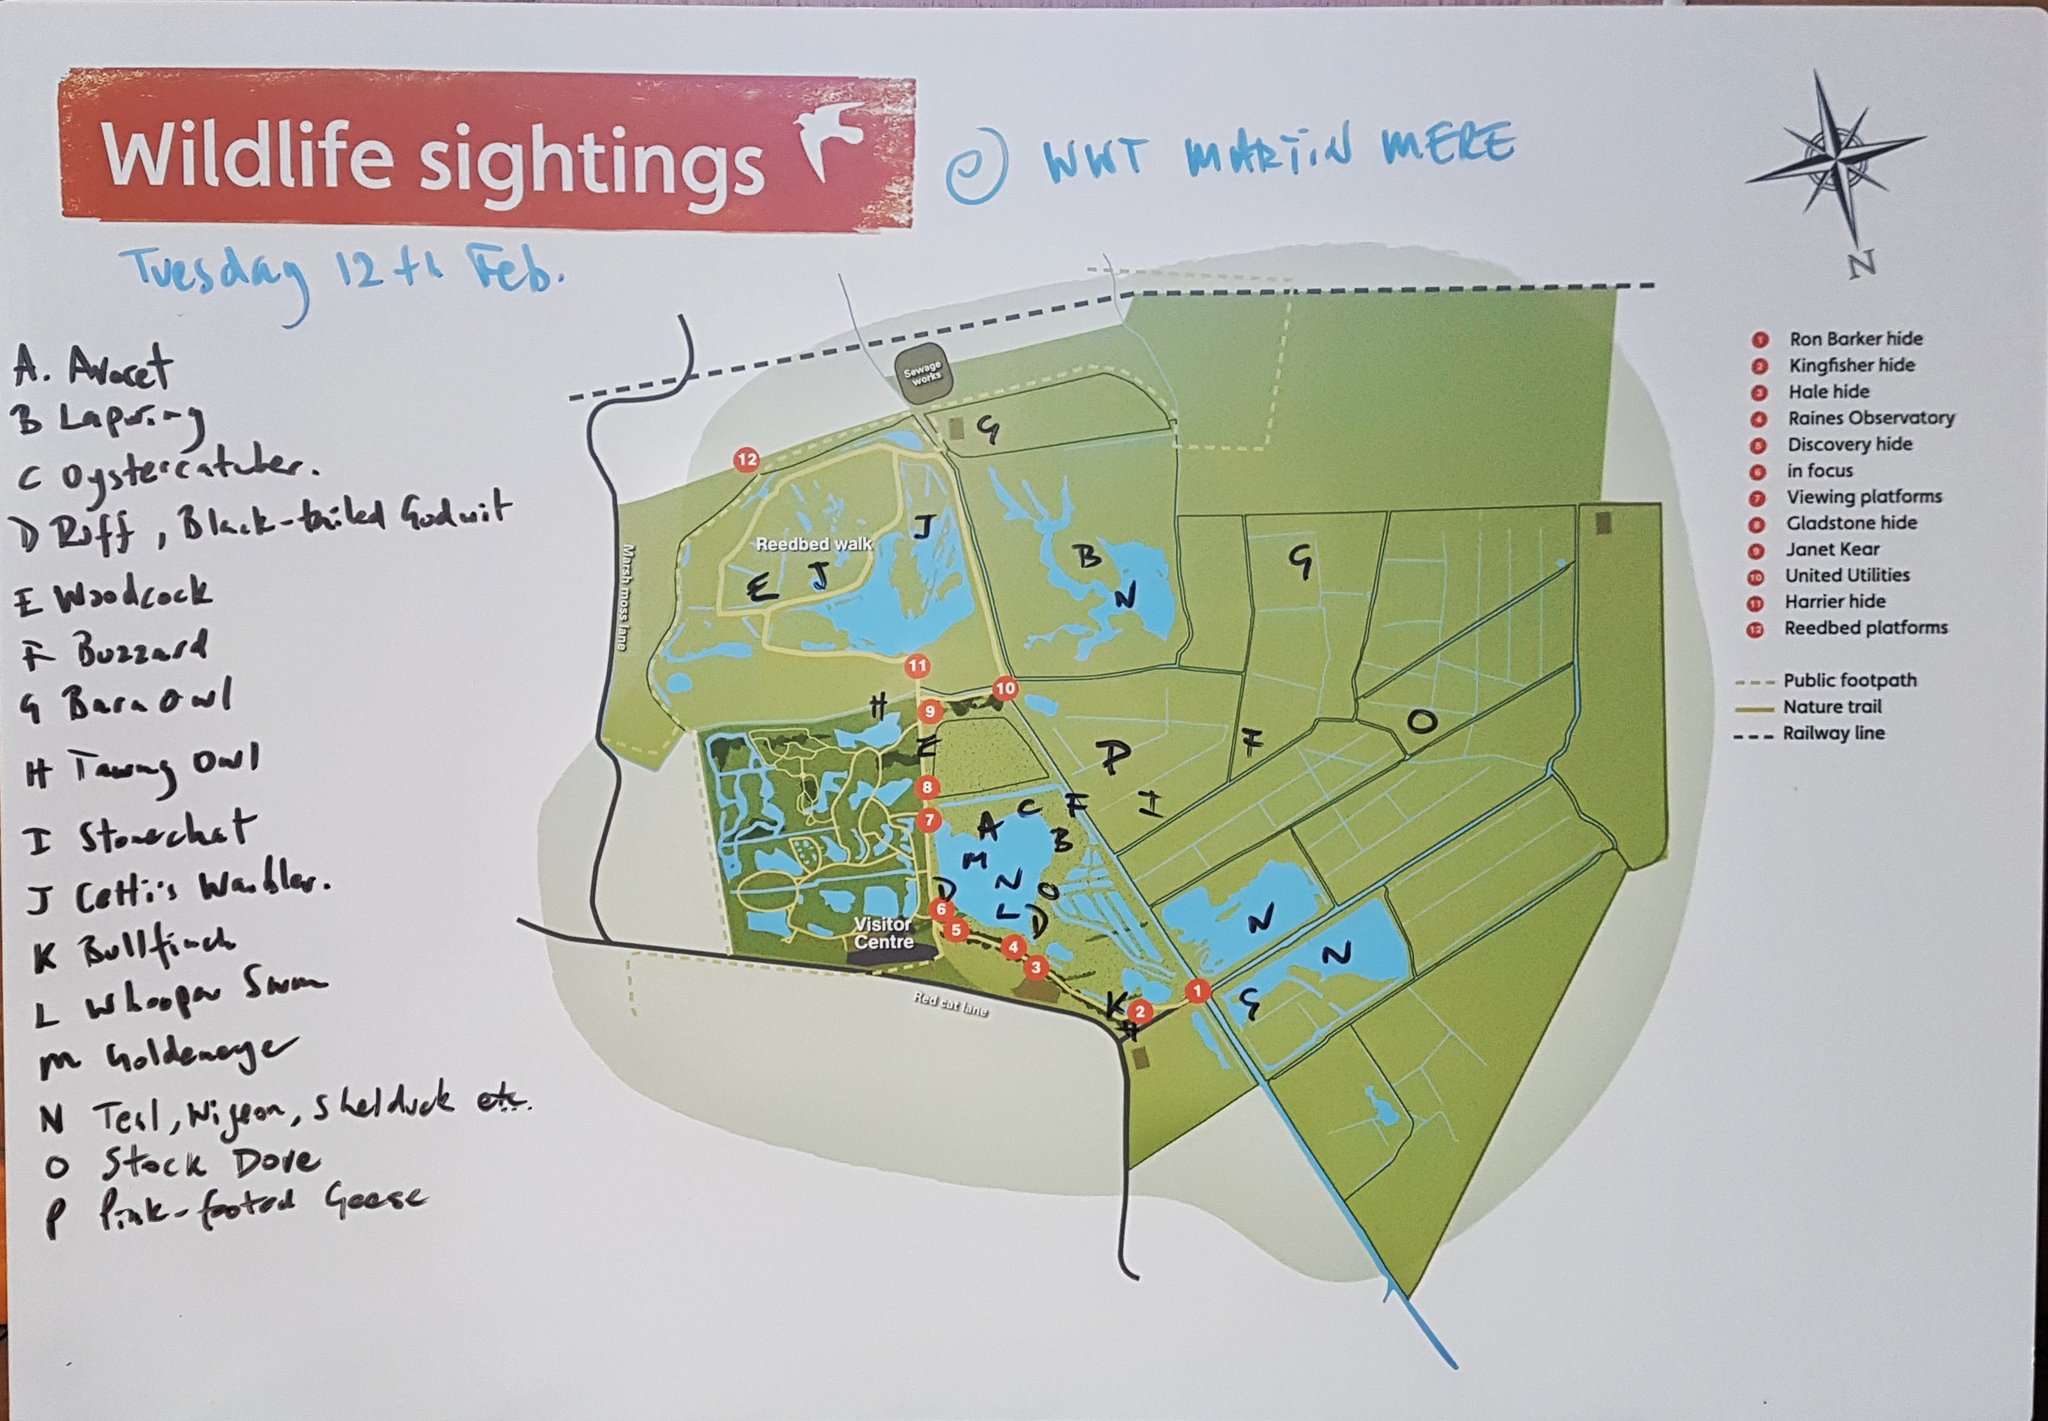 Wildlife sightings
@ WWT MARTIN MERE
Tuesday 12th Feb.
N
A. Avocet
B Lapwing
C Oystercatcher.
D Ruff, Black-tailed Godwit
E Woodcock
F Buzzard
G Barn Owl
H Tawny Owl
I Stonechat
J Cetti's Warbler.
K Bullfinch
L Whooper Swan
M Goldeneye
N Teal, Wigeon, Shelduck etc.
O Stock Dove
P Pink-footed Geese
Sewage
works
G
12
J
Reedbed walk
B
G
E J
N
Marsh moss lane
11
10
H
9
O
E
P
F
8
C
F
I
7
A
B
M
N
O
D
L
D
6
N
Visitor
Centre
5
4
N
3
1
G
K
2
H
Red cat lane
1 Ron Barker hide
2 Kingfisher hide
3 Hale hide
4 Raines Observatory
5 Discovery hide
6 in focus
7 Viewing platforms
8 Gladstone hide
9 Janet Kear
10 United Utilities
11 Harrier hide
12 Reedbed platforms
Public footpath
Nature trail
Railway line